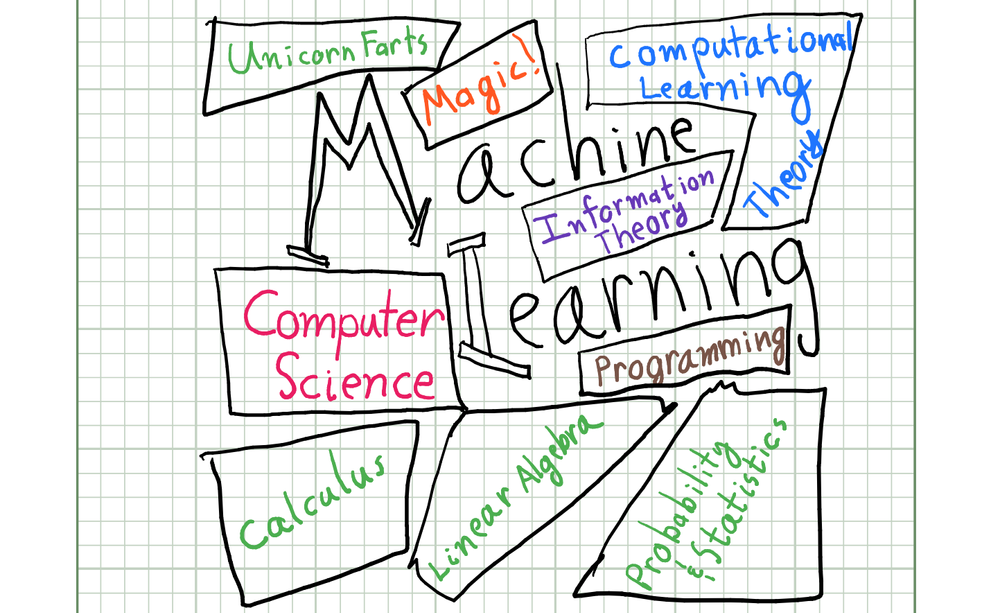 Unicorn Farts
Magic!
Computational
Learning
Theory
Machine
Information
Theory
Learning
Computer
Science
Programming
Calculus
Linear Algebra
Probability
& Statistics